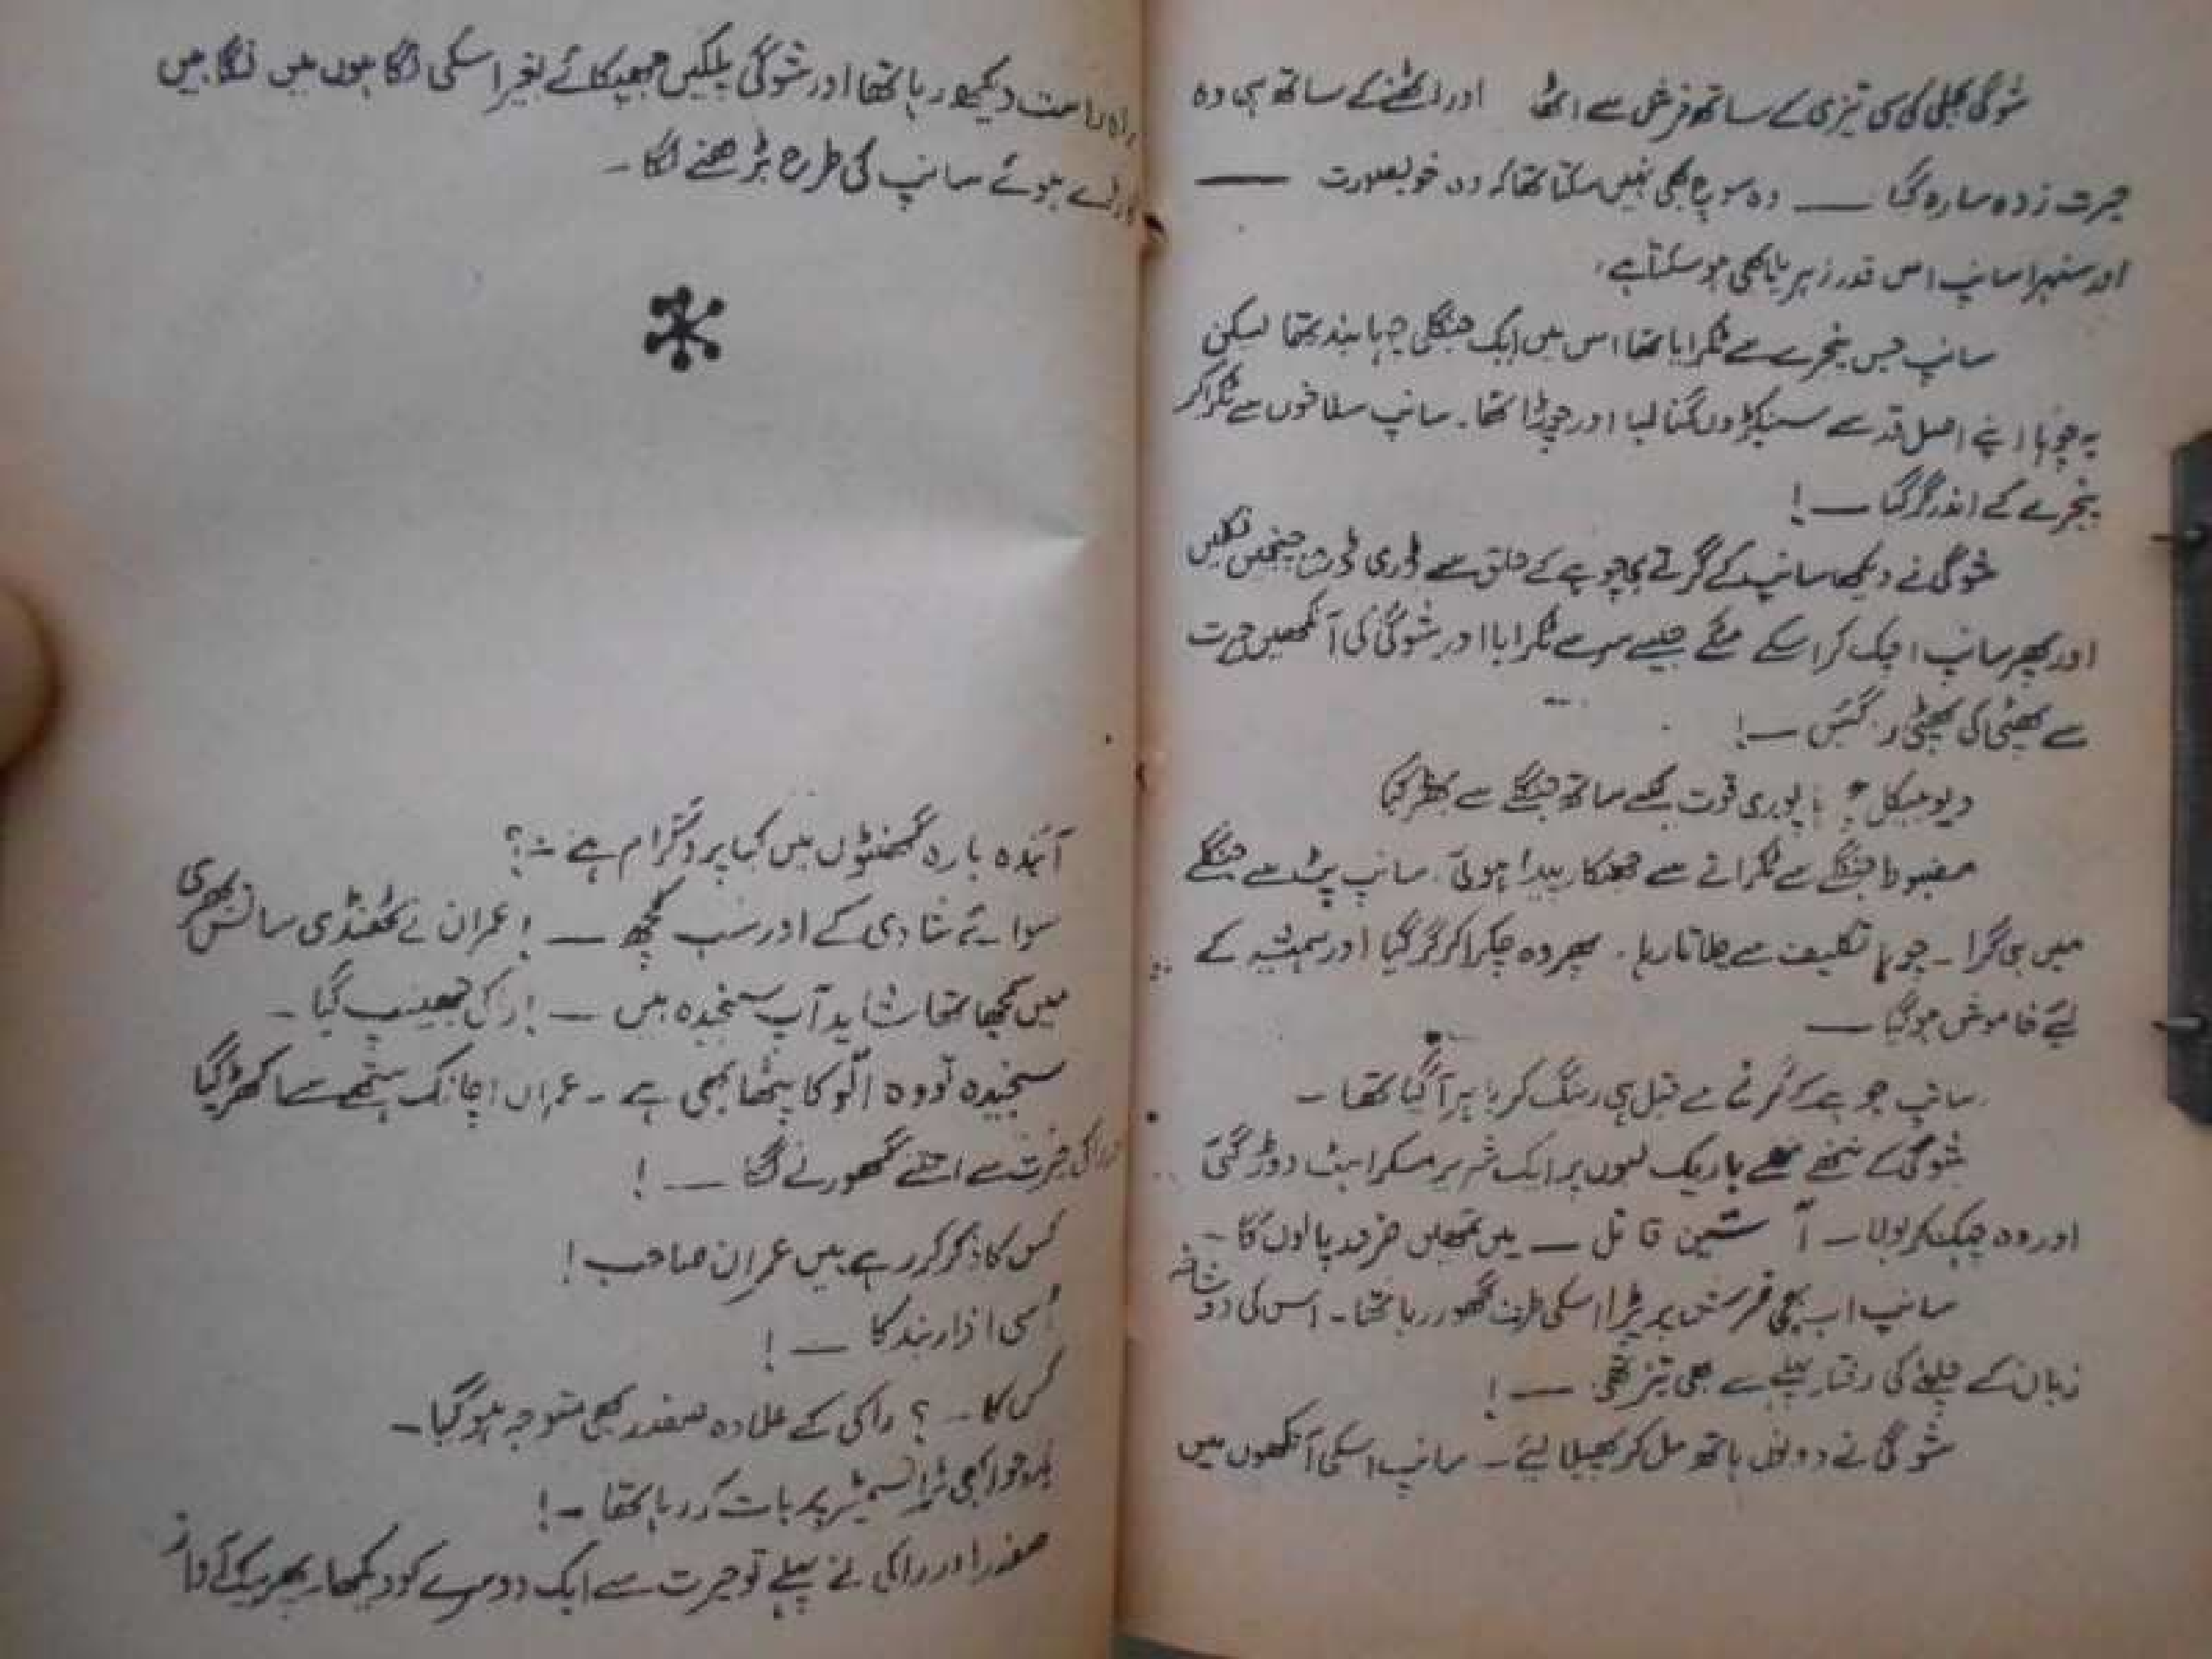 شوگی بجلی کی سی تیزی کے ساتھ فرش سے اٹھا اور اٹھنے کے ساتھ ہی وہ
حیرت زدہ سا رہ گیا — وہ سوچ بھی نہیں سکتا تھا کہ وہ خوبصورت —
اور سنہرا سانپ اس قدر زہریلا بھی ہو سکتا ہے۔
سانپ جس پنجرے سے ٹکرایا تھا اس میں ایک جنگلی چوہا بند تھا لیکن
یہ چوہا اپنے اصل قد سے سینکڑوں گنا لمبا اور چوڑا تھا۔ سانپ سلاخوں سے ٹکرا کر
پنجرے کے اندر گر گیا —!
شوگی نے دیکھا سانپ کے گرتے ہی چوہے کے حلق سے ڈری ڈری چیخیں نکلیں
اور پھر سانپ اچک کر اسکے مٹکے جیسے سر سے ٹکرایا اور شوگی کی آنکھیں حیرت
سے پھٹی کی پھٹی رہ گئیں —!
دیو ہیکل پوری قوت کے ساتھ جنگلے سے
مضبوط جنگلے سے ٹکرانے سے جھنکار پیدا ہوئی۔ سانپ پٹ سے جنگلے
میں ہی گرا ۔ چوہا تکلیف سے چلاتا رہا۔ پھر وہ چکرا کر گر گیا اور ہمیشہ کے
لیئے خاموش ہو گیا —
سانپ چوہے کے گرنے سے قبل ہی رینگ کر باہر آ گیا تھا ۔
شوگی کے ننھے ننھے باریک لبوں پر ایک شریر مسکراہٹ دوڑ گئی
اور وہ چہک کر بولا ۔ آتشین قاتل — میں تمھیں ضرور پالوں گا ۔
سانپ اب بھی فرش پر پڑا اسکی طرف گھور رہا تھا ۔ اس کی دو شاخہ
زبان کے چلنے کی رفتار پہلے سے بھی تیز تھی —!
شوگی نے دونوں ہاتھ مل کر پھیلا لیئے ۔ سانپ اسکی آنکھوں میں
براہ راست دیکھ رہا تھا اور شوگی پلکیں جھپکائے بغیر اسکی نگاہوں میں نگاہیں
ڈالے ہوئے سانپ کی طرح بڑھنے لگا ۔
آئندہ بارہ گھنٹوں میں کیا پروگرام ہے ۔؟
سوائے شادی کے اور سب کچھ —! عمران نے ٹھنڈی سانس بھری
میں سمجھا تھا شاید آپ سنجیدہ ہیں —! راکی جھینپ گیا ۔
سنجیدہ تو وہ الّو کا پٹھا بھی ہے ۔ عمران اچانک ہتھے سے اکھڑ گیا
راکی حیرت سے اسے گھورنے لگا —!
کس کا ذکر کر رہے ہیں عمران صاحب!
اُسی ازار بند کا —!
کس کا ۔ ؟ راکی کے علاوہ صفدر بھی متوجہ ہو گیا ۔
جو ابھی ٹرانسمیٹر پر بات کر رہا تھا ۔!
صفدر اور راکی نے پہلے تو حیرت سے ایک دوسرے کو دیکھا۔ پھر بیک آواز